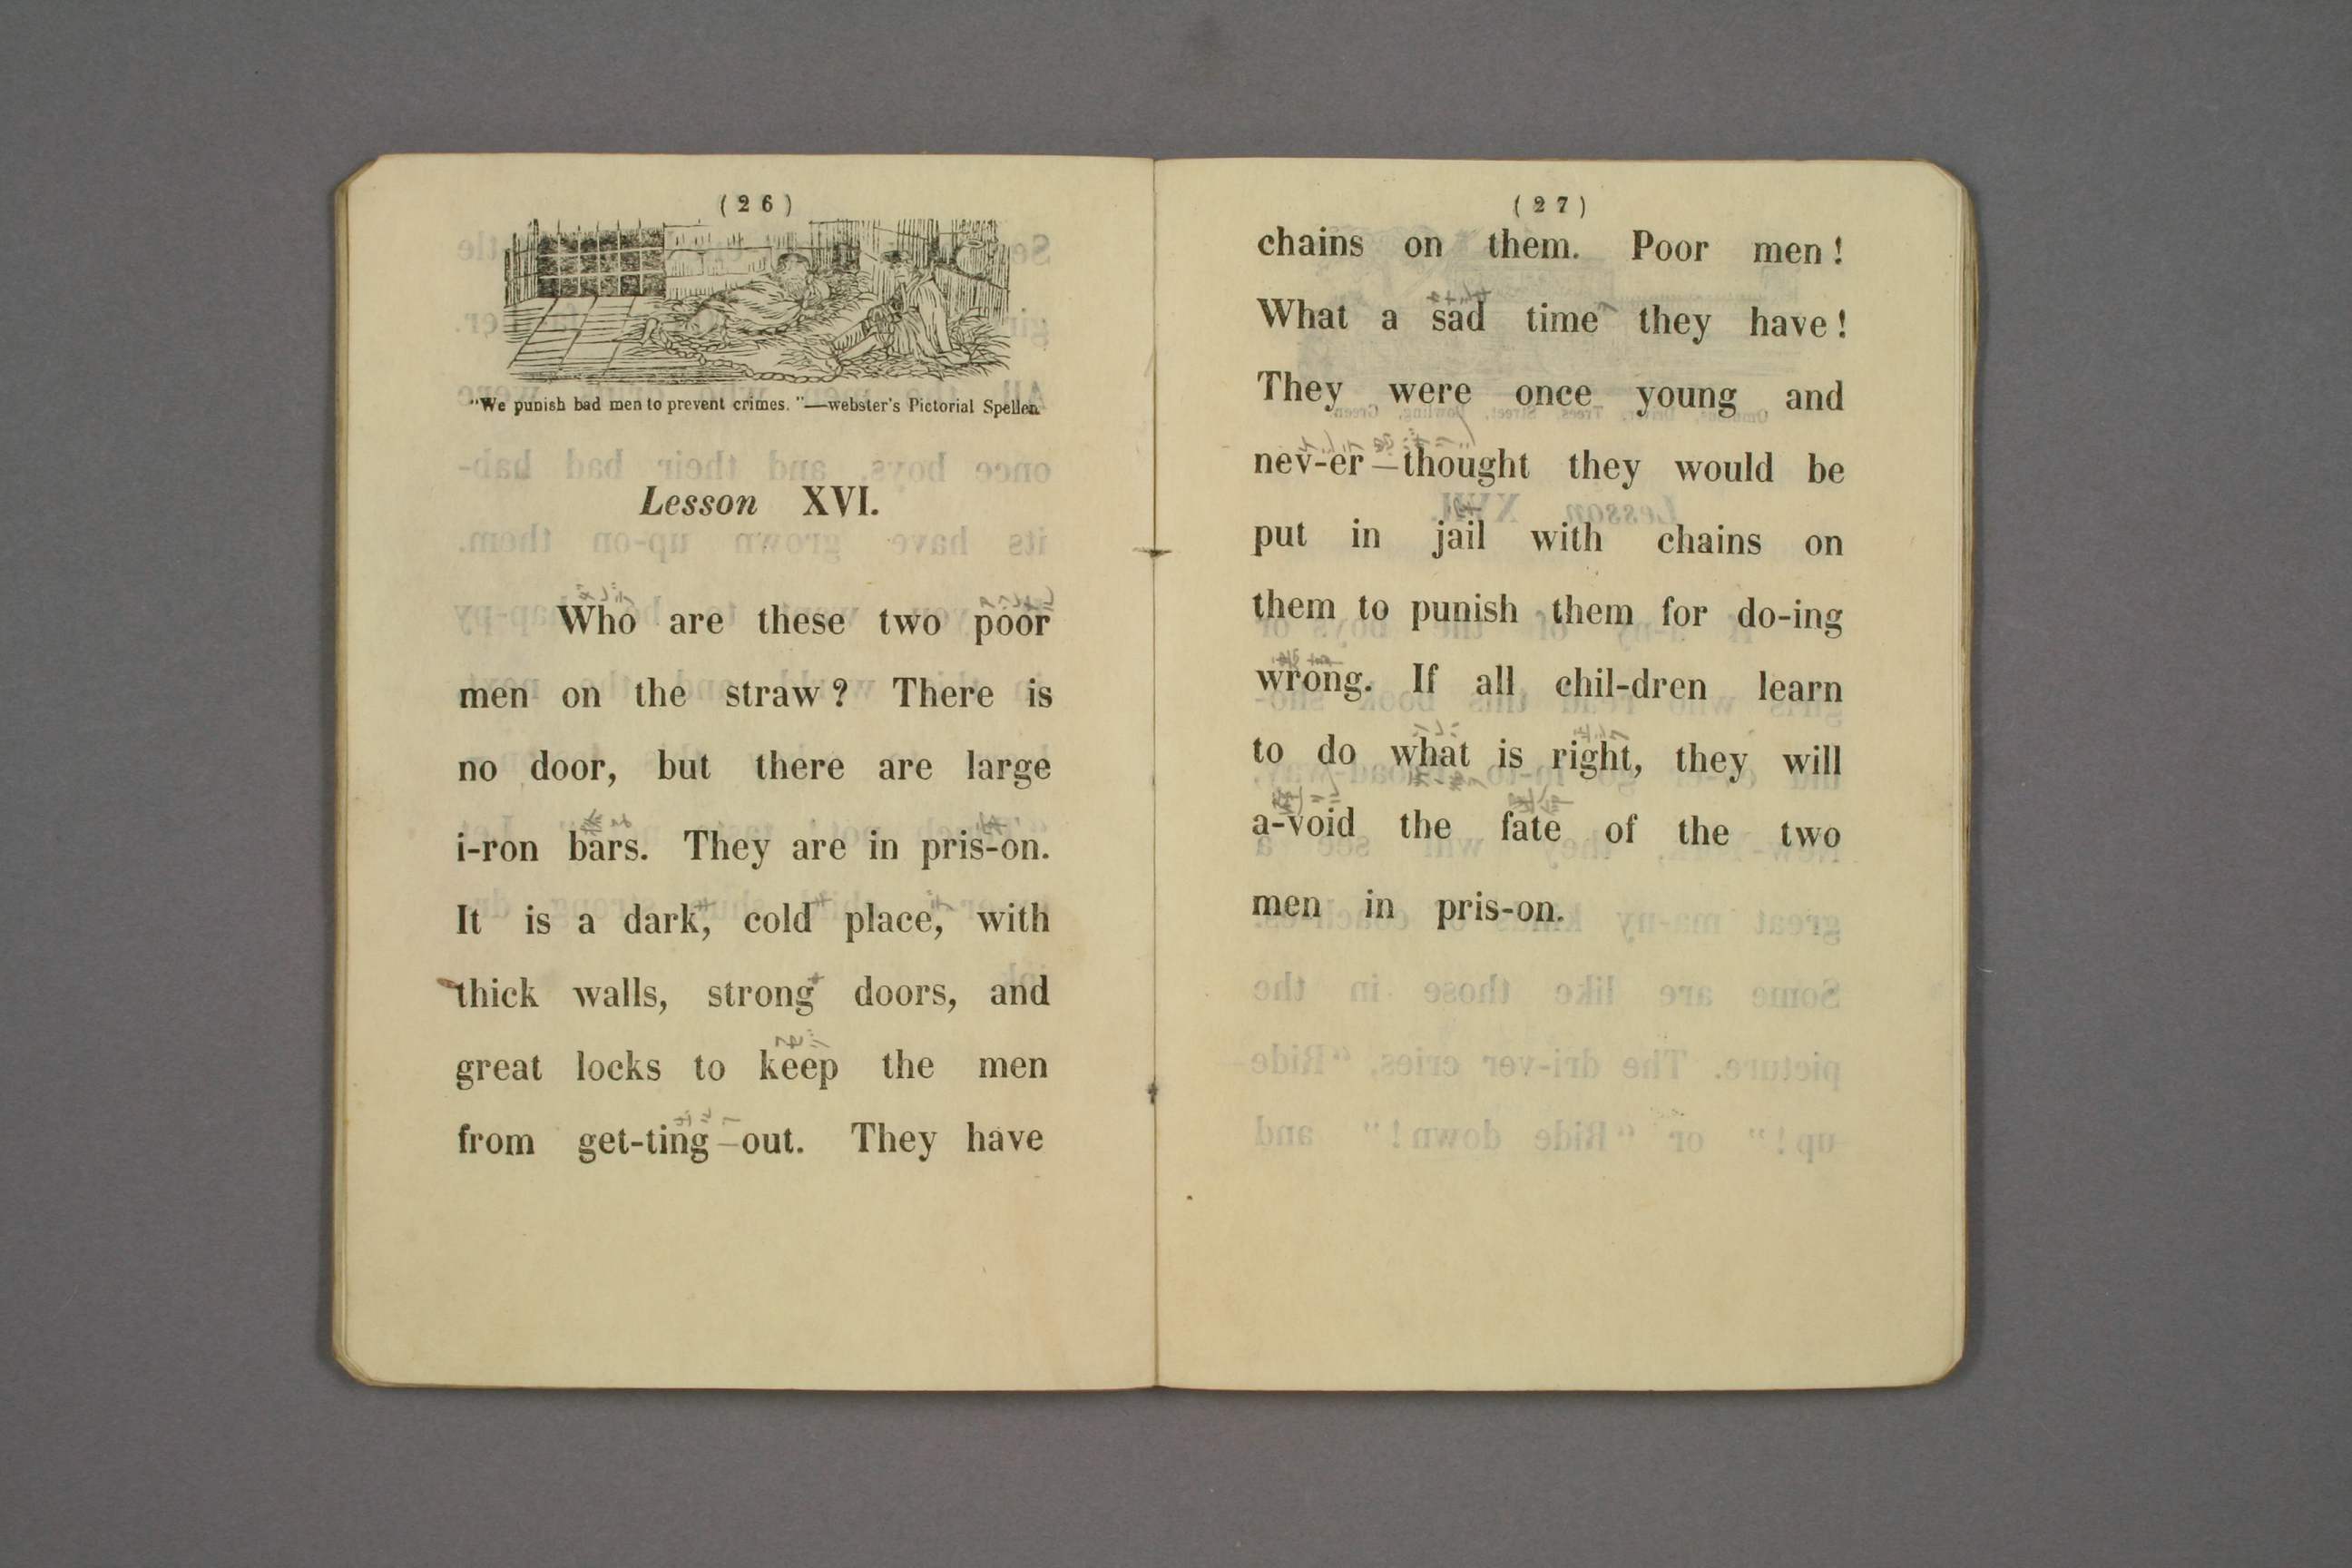 (26)
"We punish bad men to prevent crimes."—webster's Pictorial Speller.
Lesson XVI.
Who are these two poor
men on the straw? There is
no door, but there are large
i-ron bars. They are in pris-on.
It is a dark, cold place, with
thick walls, strong doors, and
great locks to keep the men
from get-ting out. They have
(27)
chains on them. Poor men!
What a sad time they have!
They were once young and
nev-er thought they would be
put in jail with chains on
them to punish them for do-ing
wrong. If all chil-dren learn
to do what is right, they will
a-void the fate of the two
men in pris-on.